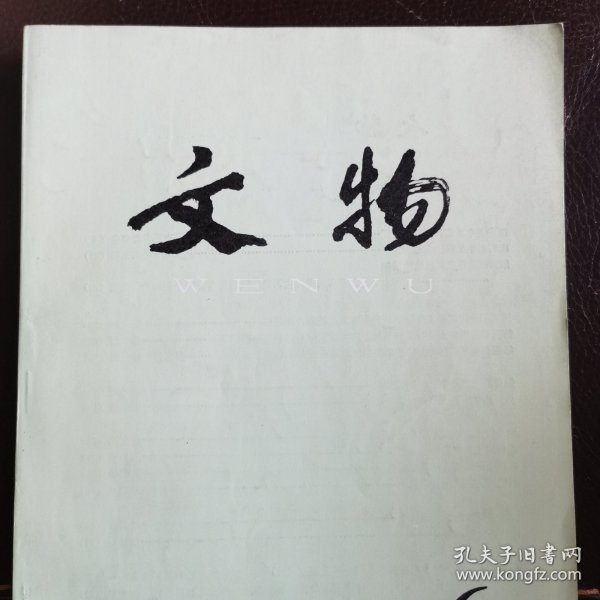 文物
WENWU
孔夫子旧书网
www.kongfz.com